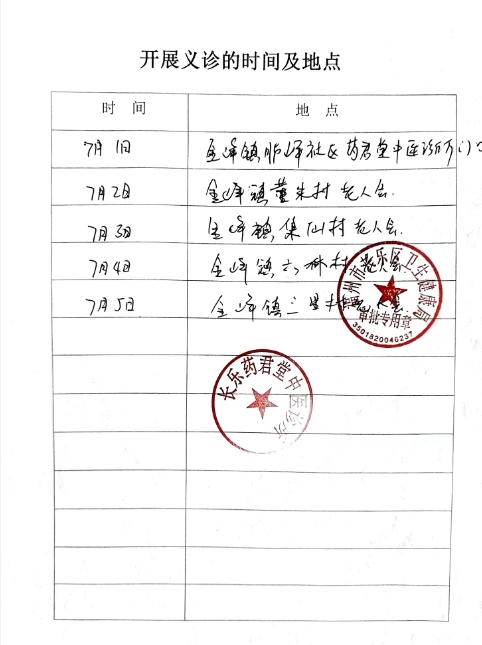 开展义诊的时间及地点
时 间 地 点
7月1日 金峰镇胪峰社区药君堂中医诊所门口
7月2日 金峰镇董朱村老人会.
7月3日 金峰镇集仙村老人会.
7月4日 金峰镇六林村老人会
7月5日 金峰镇三星村老人会
福州市长乐区卫生健康局
审批专用章
3501820046237
长乐药君堂中医诊所